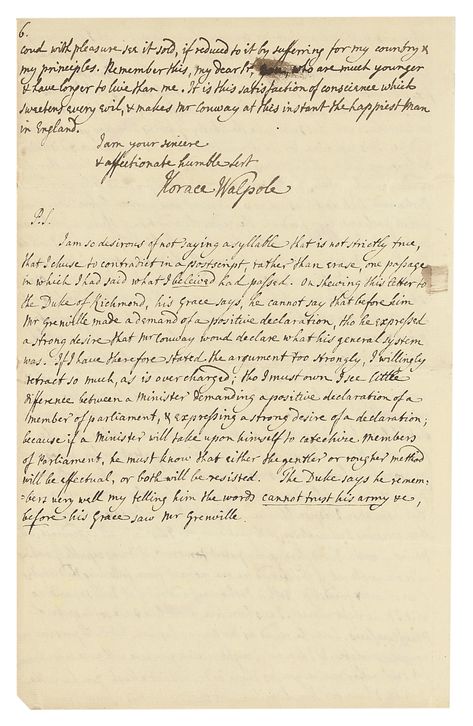 6.
coud with pleasure see it sold, if reduced to it by suffering for my country &
my principles. Remember this, my dear Sr, who are much younger
& have longer to live than me. It is this satisfaction of conscience which
sweetens every evil, & makes Mr Conway at this instant the happiest Man
in England.
I am your sincere
& affectionate humble Sert
Horace Walpole
P.S.
I am so desirous of not saying a syllable that is not strictly true,
that I chuse to contradict in a postscript, rather than erase, one passage
in which I had said what I beleived had passed. On shewing this letter to
the Duke of Richmond, his Grace says, he cannot say that before him
Mr Grenville made a demand of a positive declaration, tho he expressed
a strong desire that Mr Conway woud declare what his general system
was. If I have therefore stated the argument too strongly, I willingly
retract so much, as is overcharged; tho I must own I see little
difference between a Minister demanding a positive declaration of a
member of parliament, & expressing a strong desire of a declaration;
because if a Minister will take upon himself to catechize members
of Parliament, he must know that either the gentler or rougher method
will be effectual, or both will be resisted. The Duke says he remem-
=bers very well my telling him the words cannot trust his army &c,
before his Grace saw Mr Grenville.